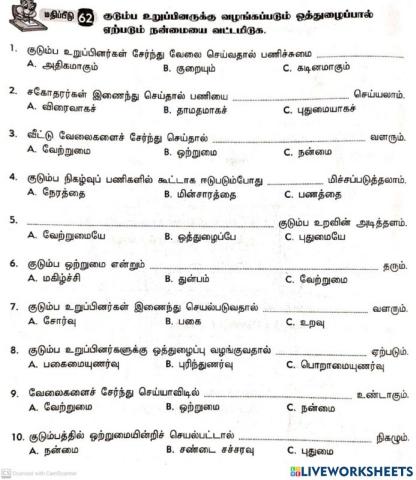 மதிப்பீடு 62 குடும்ப உறுப்பினருக்கு வழங்கப்படும் ஒத்துழைப்பால்
ஏற்படும் நன்மையை வட்டமிடுக.
1. குடும்ப உறுப்பினர்கள் சேர்ந்து வேலை செய்வதால் பணிச்சுமை
A. அதிகமாகும் B. குறையும் C. கடினமாகும்
2. சகோதரர்கள் இணைந்து செய்தால் பணியை செய்யலாம்.
A. விரைவாகச் B. தாமதமாகச் C. புதுமையாகச்
3. வீட்டு வேலைகளைச் சேர்ந்து செய்தால் வளரும்.
A. வேற்றுமை B. ஒற்றுமை C. நன்மை
4. குடும்ப நிகழ்வுப் பணிகளில் கூட்டாக ஈடுபடும்போது மிச்சப்படுத்தலாம்.
A. நேரத்தை B. மின்சாரத்தை C. பணத்தை
5. குடும்ப உறவின் அடித்தளம்.
A. வேற்றுமையே B. ஒத்துழைப்பே C. புதுமையே
6. குடும்ப ஒற்றுமை என்றும் தரும்.
A. மகிழ்ச்சி B. துன்பம் C. வேற்றுமை
7. குடும்ப உறுப்பினர்கள் இணைந்து செயல்படுவதால் வளரும்.
A. சோர்வு B. பகை C. உறவு
8. குடும்ப உறுப்பினர்களுக்கு ஒத்துழைப்பு வழங்குவதால் ஏற்படும்.
A. பகைமையுணர்வு B. புரிந்துணர்வு C. பொறாமையுணர்வு
9. வேலைகளைச் சேர்ந்து செய்யாவிடில் உண்டாகும்.
A. வேற்றுமை B. ஒற்றுமை C. நன்மை
10. குடும்பத்தில் ஒற்றுமையின்றிச் செயல்பட்டால் நிகழும்.
A. நன்மை B. சண்டை சச்சரவு C. புதுமை
CS Scanned with CamScanner
LIVEWORKSHEETS